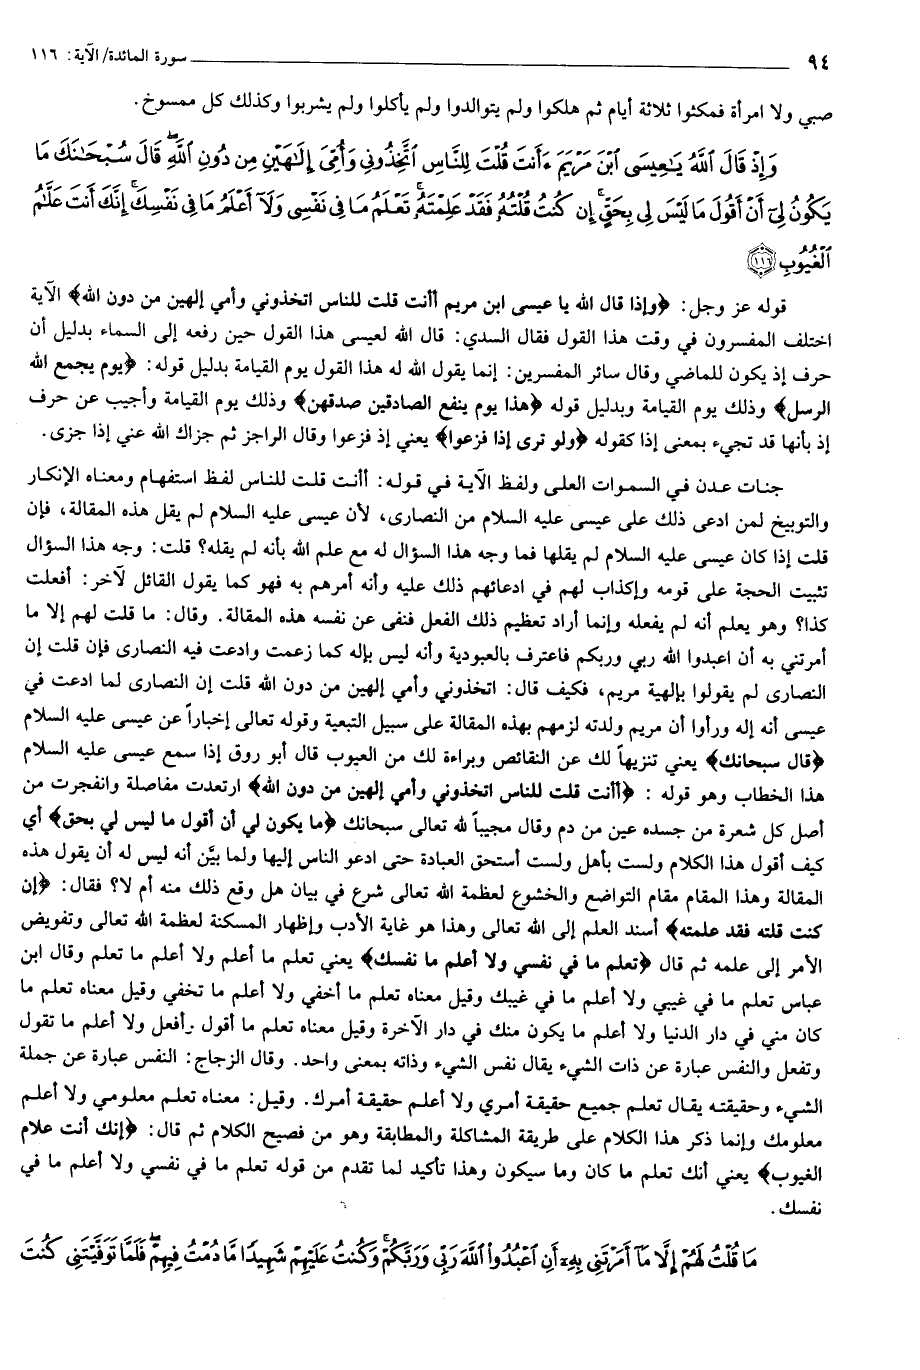 ٩٤ سورة المائدة/ الآية: ١١٦
صبي ولا امرأة فمكثوا ثلاثة أيام ثم هلكوا ولم يتوالدوا ولم يأكلوا ولم يشربوا وكذلك كل ممسوخ.
وَإِذْ قَالَ ٱللَّهُ يَٰعِيسَى ٱبْنَ مَرْيَمَ ءَأَنتَ قُلْتَ لِلنَّاسِ ٱتَّخِذُونِى وَأُمِّىَ إِلَٰهَيْنِ مِن دُونِ ٱللَّهِۖ قَالَ سُبْحَٰنَكَ مَا
يَكُونُ لِىٓ أَنْ أَقُولَ مَا لَيْسَ لِى بِحَقٍّۚ إِن كُنتُ قُلْتُهُۥ فَقَدْ عَلِمْتَهُۥۚ تَعْلَمُ مَا فِى نَفْسِى وَلَآ أَعْلَمُ مَا فِى نَفْسِكَۚ إِنَّكَ أَنتَ عَلَّٰمُ
ٱلْغُيُوبِ ١١٦
قوله عز وجل: ﴿وإذا قال الله يا عيسى ابن مريم أأنت قلت للناس اتخذوني وأمي إلهين من دون الله﴾ الآية
اختلف المفسرون في وقت هذا القول فقال السدي: قال الله لعيسى هذا القول حين رفعه إلى السماء بدليل أن
حرف إذ يكون للماضي وقال سائر المفسرين: إنما يقول الله له هذا القول يوم القيامة بدليل قوله: ﴿يوم يجمع الله
الرسل﴾ وذلك يوم القيامة وبدليل قوله ﴿هذا يوم ينفع الصادقين صدقهن﴾ وذلك يوم القيامة وأجيب عن حرف
إذ بأنها قد تجيء بمعنى إذا كقوله ﴿ولو ترى إذا فزعوا﴾ يعني إذ فزعوا وقال الراجز ثم جزاك الله عني إذا جزى.
جنات عدن في السموات العلى ولفظ الآية في قوله: أأنت قلت للناس لفظ استفهام ومعناه الإنكار
والتوبيخ لمن ادعى ذلك على عيسى عليه السلام من النصارى، لأن عيسى عليه السلام لم يقل هذه المقالة، فإن
قلت إذا كان عيسى عليه السلام لم يقلها فما وجه هذا السؤال له مع علم الله بأنه لم يقله؟ قلت: وجه هذا السؤال
تثبيت الحجة على قومه وإكذاب لهم في ادعائهم ذلك عليه وأنه أمرهم به فهو كما يقول القائل لآخر: أفعلت
كذا؟ وهو يعلم أنه لم يفعله وإنما أراد تعظيم ذلك الفعل فنفى عن نفسه هذه المقالة. وقال: ما قلت لهم إلا ما
أمرتني به أن اعبدوا الله ربي وربكم فاعترف بالعبودية وأنه ليس بإله كما زعمت وادعت فيه النصارى فإن قلت إن
النصارى لم يقولوا بإلهية مريم، فكيف قال: اتخذوني وأمي إلهين من دون الله قلت إن النصارى لما ادعت في
عيسى أنه إله ورأوا أن مريم ولدته لزمهم بهذه المقالة على سبيل التبعية وقوله تعالى إخباراً عن عيسى عليه السلام
﴿قال سبحانك﴾ يعني تنزيهاً لك عن النقائص وبراءة لك من العيوب قال أبو روق إذا سمع عيسى عليه السلام
هذا الخطاب وهو قوله : ﴿أأنت قلت للناس اتخذوني وأمي إلهين من دون الله﴾ ارتعدت مفاصلة وانفجرت من
أصل كل شعرة من جسده عين من دم وقال مجيباً لله تعالى سبحانك ﴿ما يكون لي أن أقول ما ليس لي بحق﴾ أي
كيف أقول هذا الكلام ولست بأهل ولست أستحق العبادة حتى ادعو الناس إليها ولما بيَّن أنه ليس له أن يقول هذه
المقالة وهذا المقام مقام التواضع والخشوع لعظمة الله تعالى شرع في بيان هل وقع ذلك منه أم لا؟ فقال: ﴿إن
كنت قلته فقد علمته﴾ أسند العلم إلى الله تعالى وهذا هو غاية الأدب وإظهار المسكنة لعظمة الله تعالى وتفويض
الأمر إلى علمه ثم قال ﴿تعلم ما في نفسي ولا أعلم ما نفسك﴾ يعني تعلم ما أعلم ولا أعلم ما تعلم وقال ابن
عباس تعلم ما في غيبي ولا أعلم ما في غيبك وقيل معناه تعلم ما أخفي ولا أعلم ما تخفي وقيل معناه تعلم ما
كان مني في دار الدنيا ولا أعلم ما يكون منك في دار الآخرة وقيل معناه تعلم ما أقول وأفعل ولا أعلم ما تقول
وتفعل والنفس عبارة عن ذات الشيء يقال نفس الشيء وذاته بمعنى واحد. وقال الزجاج: النفس عبارة عن جملة
الشيء وحقيقته يقال تعلم جميع حقيقة أمري ولا أعلم حقيقة أمرك. وقيل: معناه تعلم معلومي ولا أعلم
معلومك وإنما ذكر هذا الكلام على طريقة المشاكلة والمطابقة وهو من فصيح الكلام ثم قال: ﴿إنك أنت علام
الغيوب﴾ يعني أنك تعلم ما كان وما سيكون وهذا تأكيد لما تقدم من قوله تعلم ما في نفسي ولا أعلم ما في
نفسك.
مَا قُلْتُ لَهُمْ إِلَّا مَآ أَمَرْتَنِى بِهِۦٓ أَنِ ٱعْبُدُوا۟ ٱللَّهَ رَبِّى وَرَبَّكُمْۚ وَكُنتُ عَلَيْهِمْ شَهِيدًا مَّا دُمْتُ فِيهِمْۖ فَلَمَّا تَوَفَّيْتَنِى كُنتَ